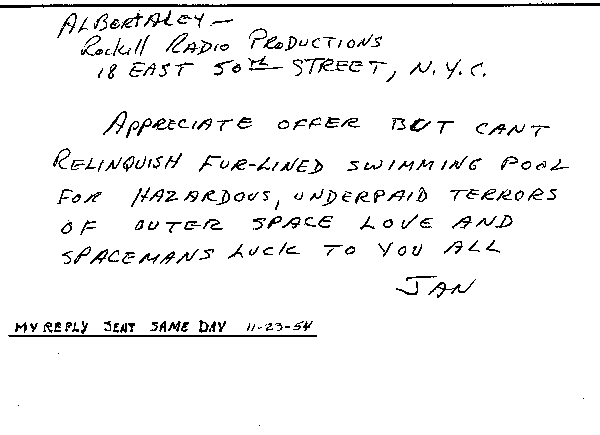 ALBERT ALEY —
Rockhill RADIO PRODUCTIONS
18 EAST 50TH STREET, N.Y.C.
APPRECIATE OFFER BUT CANT
RELINQUISH FUR-LINED SWIMMING POOL
FOR HAZARDOUS, UNDERPAID TERRORS
OF OUTER SPACE LOVE AND
SPACEMANS LUCK TO YOU ALL
JAN
MY REPLY SENT SAME DAY 11-23-54